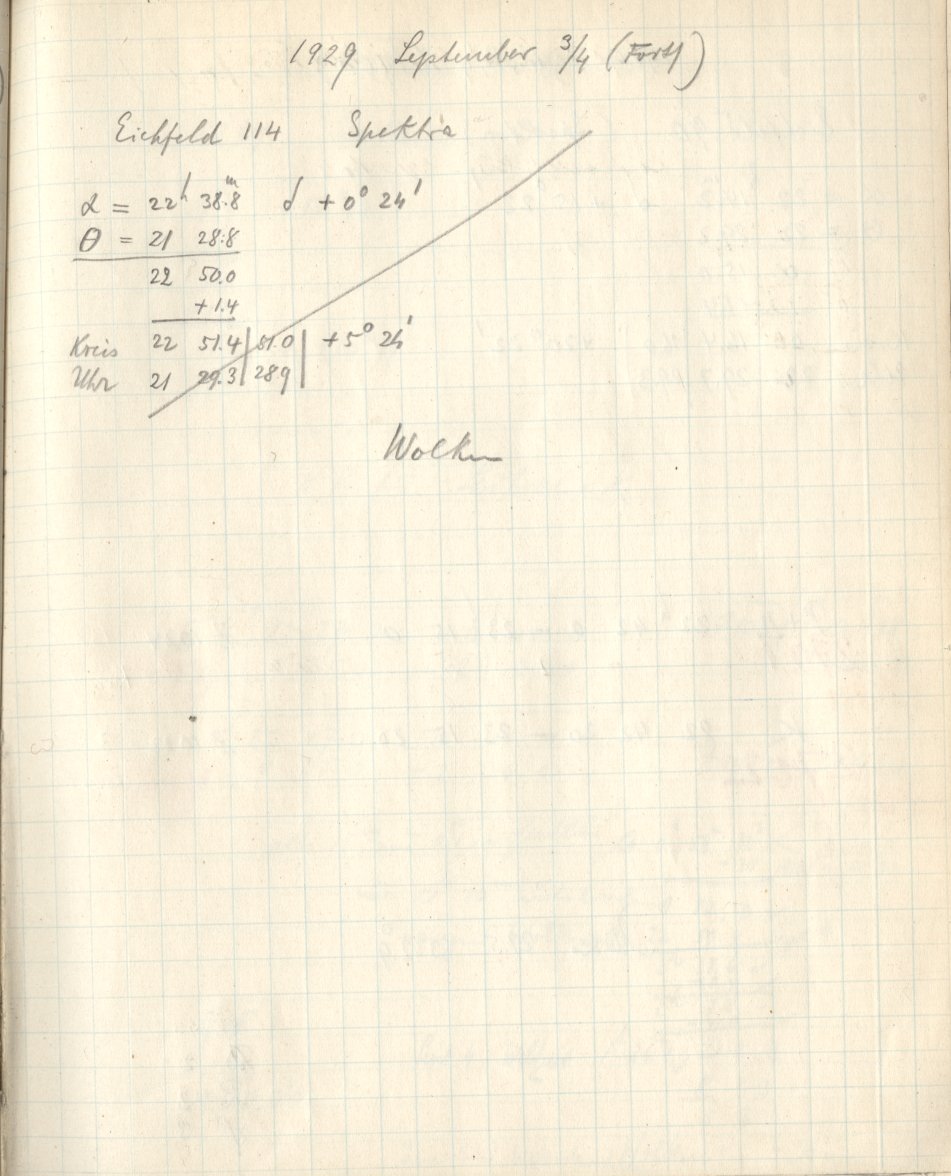 1929 September 3/4 (Forts)
Eichfeld 114 Spektra
α = 22h 38m.8 δ +0° 24'
θ = 21 28.8
22 50.0
+1.4
Kreis 22 51.4 | 51.0 | +5° 24'
Uhr 21 29.3 | 28.9 |
Wolken